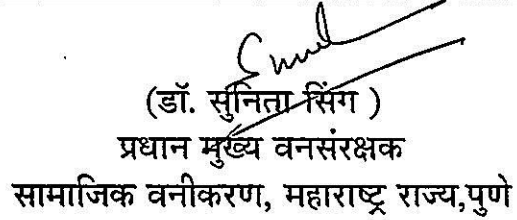 (डॉ. सुनिता सिंग )
प्रधान मुख्य वनसंरक्षक
सामाजिक वनीकरण, महाराष्ट्र राज्य,पुणे